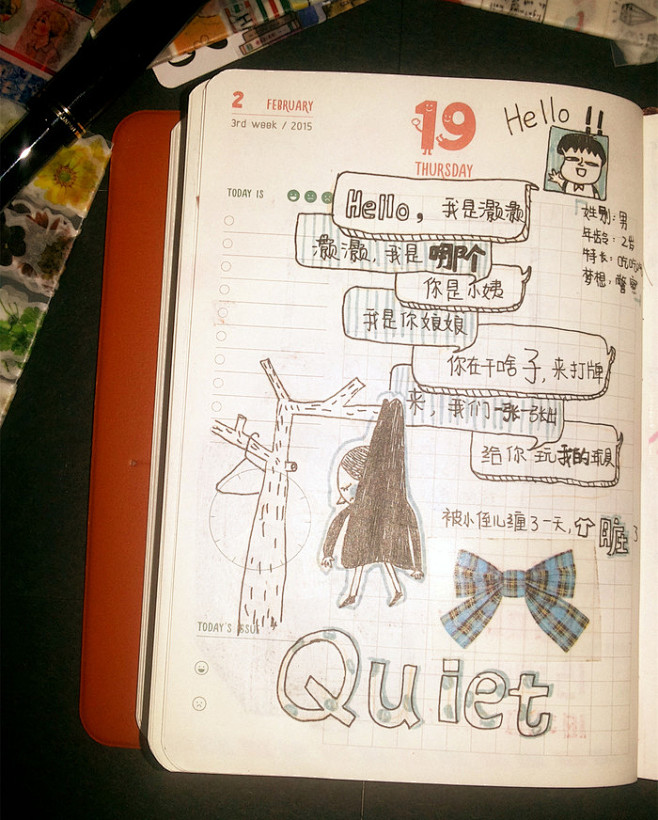 2 FEBRUARY
3rd week / 2015
19
THURSDAY
Hello !!
TODAY IS
姓别：男
年龄：2岁
特长：吃吃
梦想：警察
Hello，我是灏灏
灏灏，我是哪个
你是小姨
我是你娘娘
你在干啥子，来打牌
来，我们一张一张出
给你玩我的玩具
被小侄儿缠了一天，心脏
TODAY'S ISSUE
Quiet